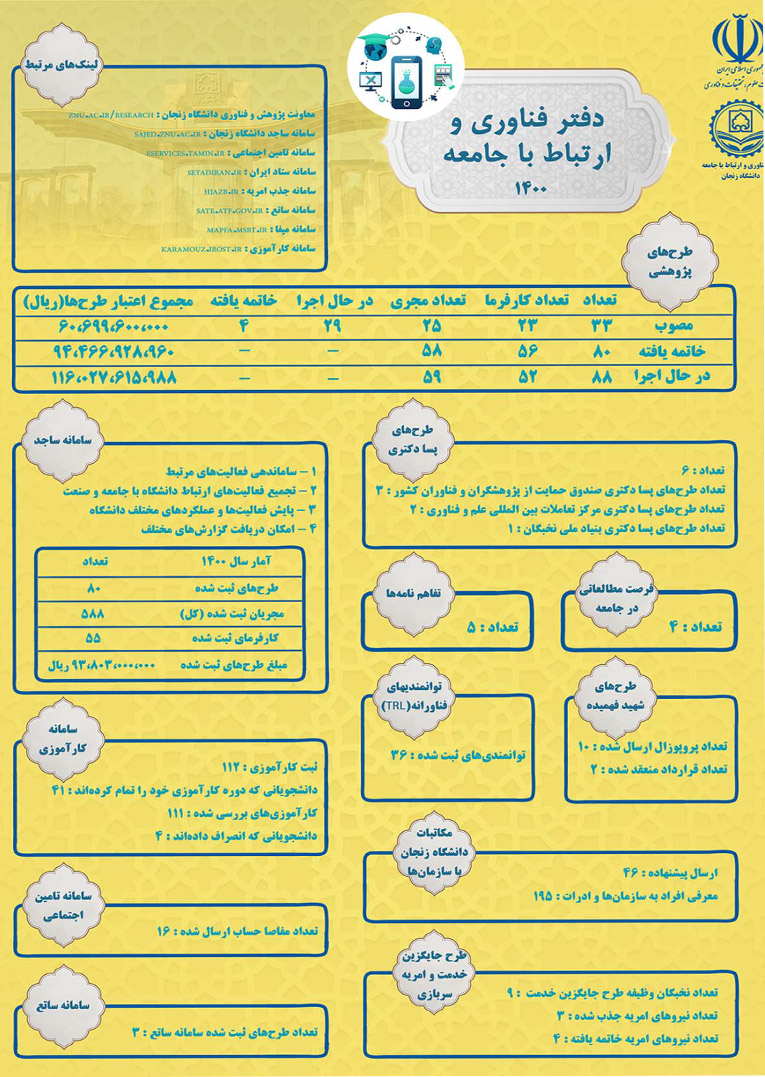 جمهوری اسلامی ایران
وزارت علوم، تحقیقات و فناوری
فناوری و ارتباط با جامعه
دانشگاه زنجان
دفتر فناوری و
ارتباط با جامعه
۱۴۰۰
لینک‌های مرتبط
معاونت پژوهش و فناوری دانشگاه زنجان : ZNU.AC.IR/RESEARCH
سامانه ساجد دانشگاه زنجان : SAJED.ZNU.AC.IR
سامانه تامین اجتماعی : ESERVICES.TAMIN.IR
سامانه ستاد ایران : SETADIRAN.IR
سامانه جذب امریه : HJAZB.IR
سامانه ساتع : SATE.ATF.GOV.IR
سامانه میفا : MAPFA.MSRT.IR
سامانه کارآموزی : KARAMOUZ.IROST.IR
طرح‌های
پژوهشی
تعداد تعداد کارفرما تعداد مجری در حال اجرا خاتمه یافته مجموع اعتبار طرح‌ها(ریال)
مصوب ۳۳ ۲۳ ۲۵ ۲۹ ۴ ۶۰،۶۹۹،۶۰۰،۰۰۰
خاتمه یافته ۸۰ ۵۶ ۵۸ – – ۹۴،۴۶۶،۹۲۸،۹۶۰
در حال اجرا ۸۸ ۵۲ ۵۹ – – ۱۱۶،۰۲۷،۶۱۵،۹۸۸
طرح‌های
پسا دکتری
تعداد : ۶
تعداد طرح‌های پسا دکتری صندوق حمایت از پژوهشگران و فناوران کشور : ۳
تعداد طرح‌های پسا دکتری مرکز تعاملات بین المللی علم و فناوری : ۲
تعداد طرح‌های پسا دکتری بنیاد ملی نخبگان : ۱
سامانه ساجد
۱ – ساماندهی فعالیت‌های مرتبط
۲ – تجمیع فعالیت‌های ارتباط دانشگاه با جامعه و صنعت
۳ – پایش فعالیت‌ها و عملکردهای مختلف دانشگاه
۴ – امکان دریافت گزارش‌های مختلف
آمار سال ۱۴۰۰ تعداد
طرح‌های ثبت شده ۸۰
مجریان ثبت شده (کل) ۵۸۸
کارفرمای ثبت شده ۵۵
مبلغ طرح‌های ثبت شده ۹۳،۸۰۳،۰۰۰،۰۰۰ ریال
فرصت مطالعاتی
در جامعه
تعداد : ۴
تفاهم نامه‌ها
تعداد : ۵
طرح‌های
شهید فهمیده
تعداد پروپوزال ارسال شده : ۱۰
تعداد قرارداد منعقد شده : ۲
توانمندیهای
فناورانه(TRL)
توانمندی‌های ثبت شده : ۳۶
سامانه
کارآموزی
ثبت کارآموزی : ۱۱۲
دانشجویانی که دوره کارآموزی خود را تمام کرده‌اند : ۴۱
کارآموزی‌های بررسی شده : ۱۱۱
دانشجویانی که انصراف داده‌اند : ۴
مکاتبات
دانشگاه زنجان
با سازمان‌ها
ارسال پیشنهاده : ۴۶
معرفی افراد به سازمان‌ها و ادرات : ۱۹۵
سامانه تامین
اجتماعی
تعداد مفاصا حساب ارسال شده : ۱۶
طرح جایگزین
خدمت و امریه
سربازی
تعداد نخبگان وظیفه طرح جایگزین خدمت : ۹
تعداد نیروهای امریه جذب شده : ۳
تعداد نیروهای امریه خاتمه یافته : ۴
سامانه ساتع
تعداد طرح‌های ثبت شده سامانه ساتع : ۳